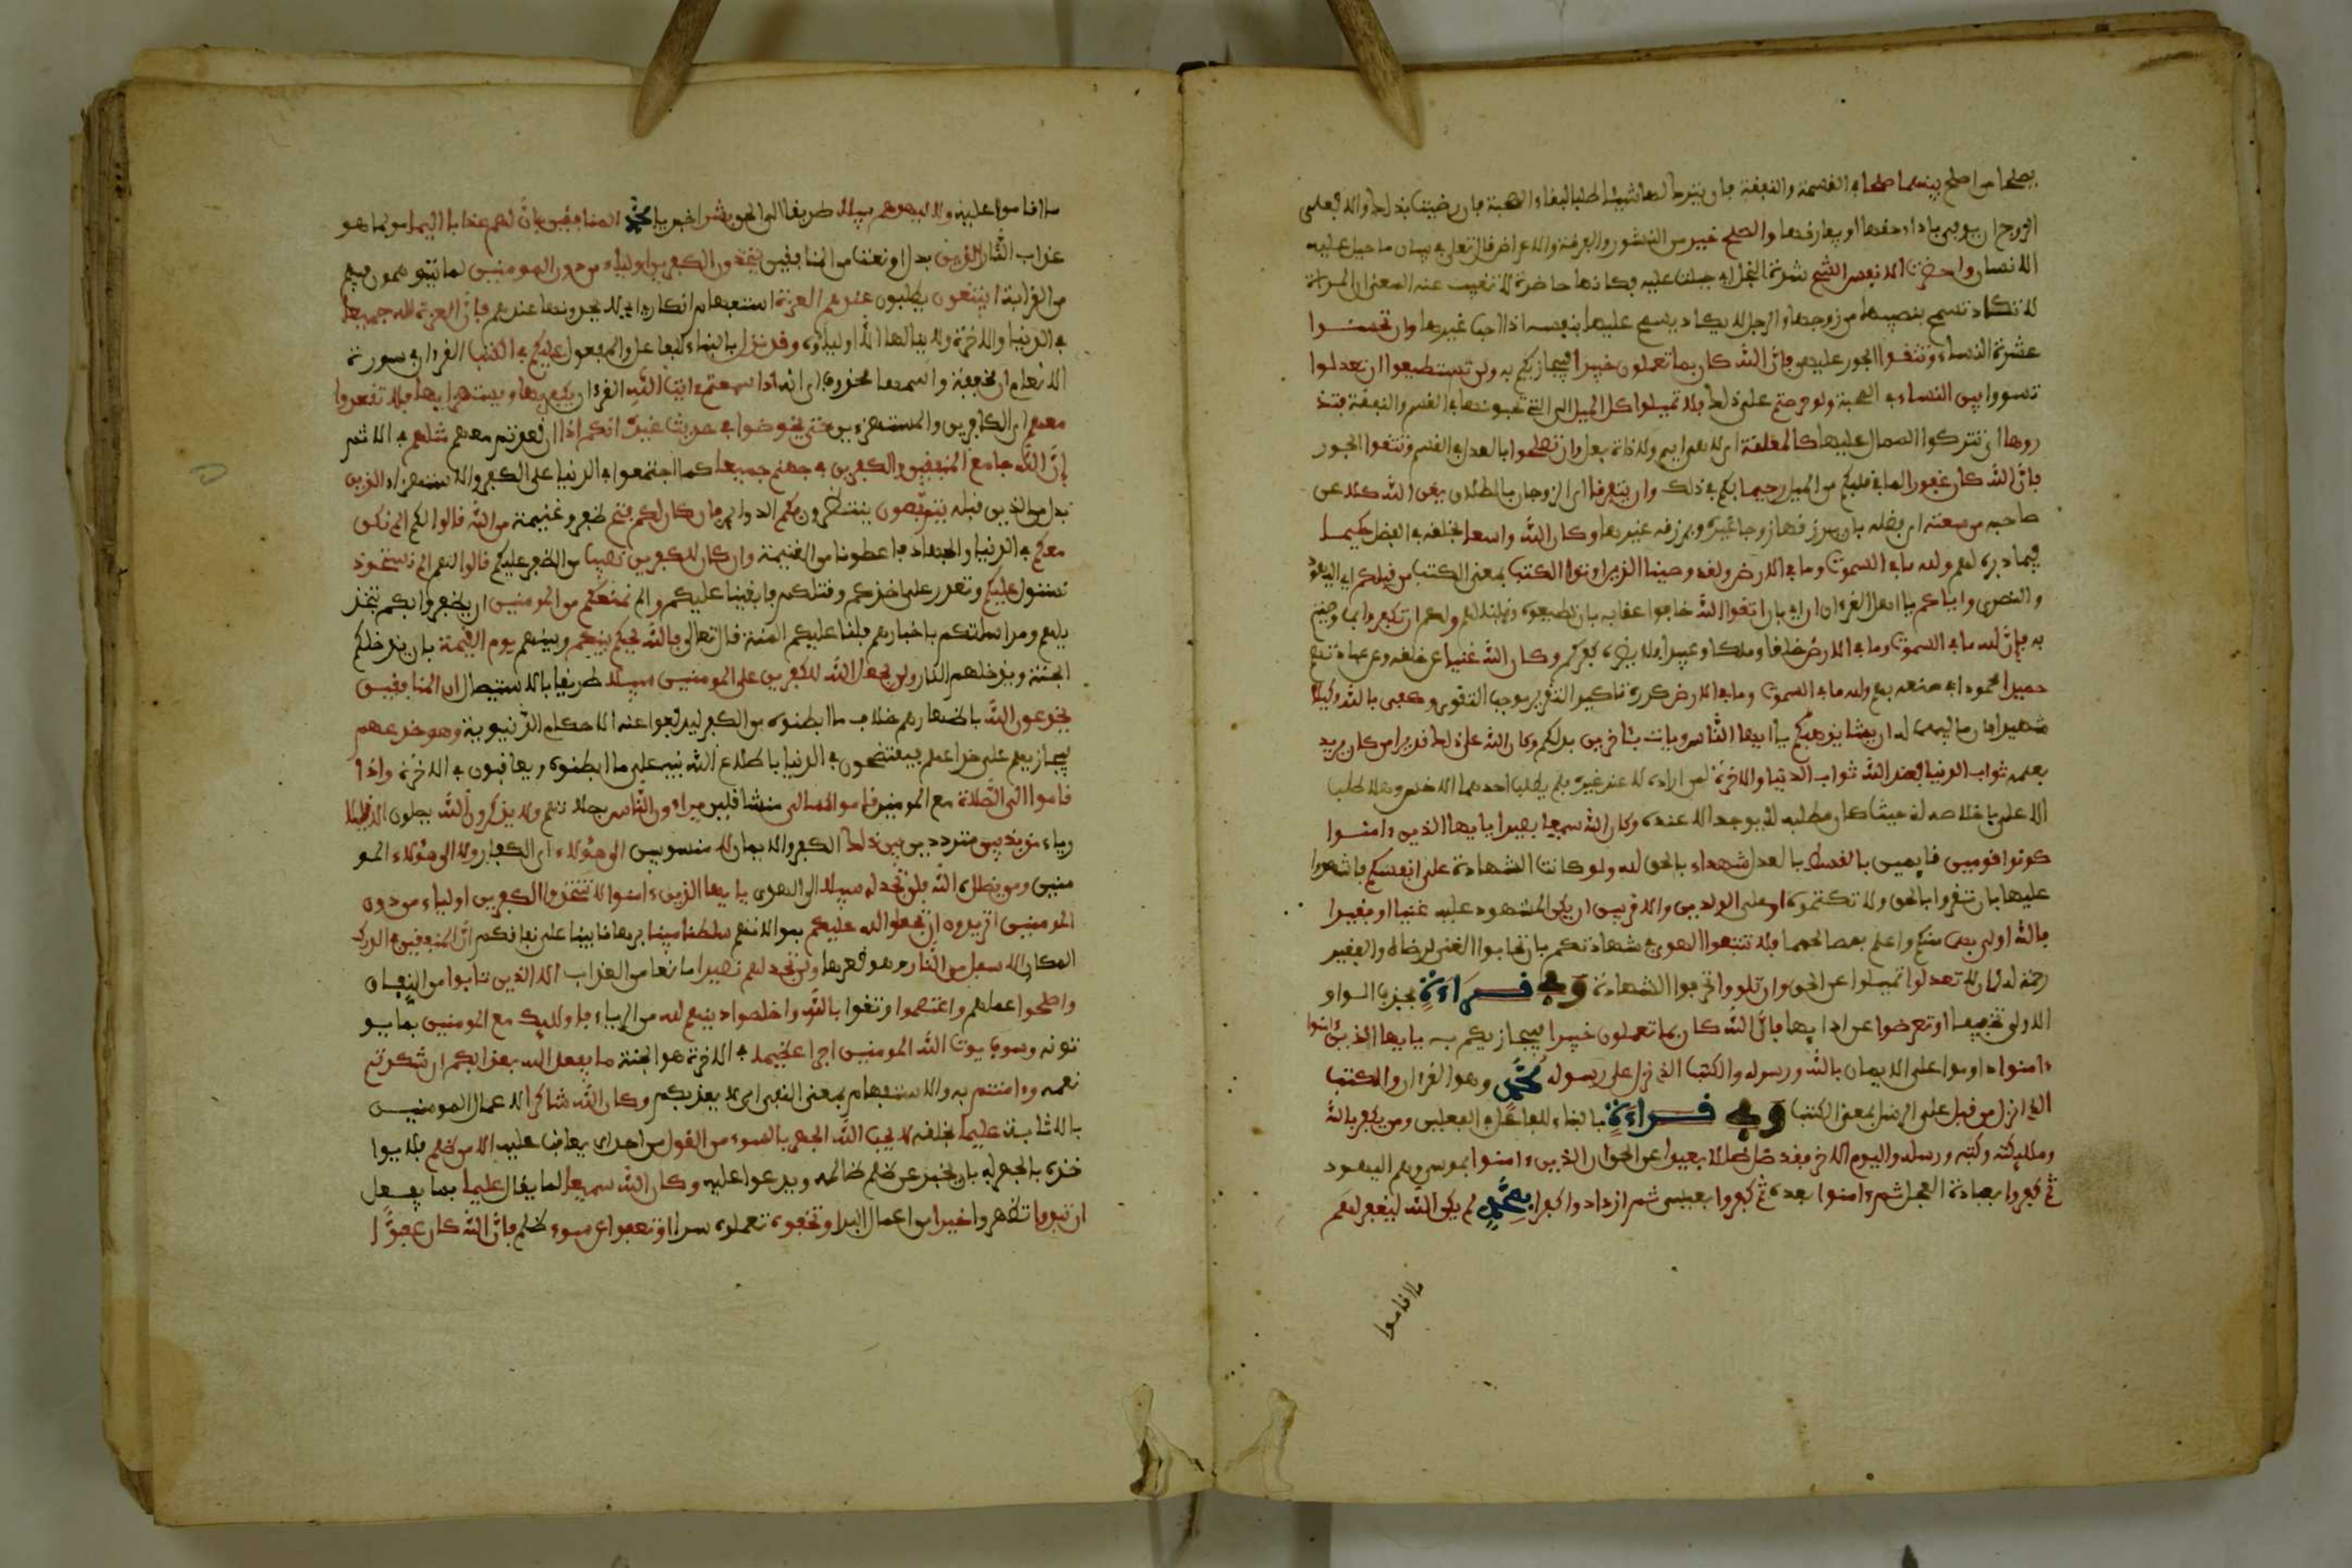 يصلحا من اصلح بينهما صلحا في القسمة والنفقة بان يترك لها شيئا طلبا لبقاء الصحبة فان رضيت بذلك والا فعلى
الزوج ان يوفيها حقها او يفارقها والصلح خير من النشوز والفرقة والاعراض قال تعالى في بيان ما جبل عليه
الانسان واحضرت الانفس الشح شدة البخل اي جبلت عليه فكانها حاضرة لا تغيب عنه المعنى ان المراة
لا تكاد تسمح بنصيبها من زوجها والرجل لا يكاد يسمح عليها بنفسه اذا احب غيرها وان تحسنوا
عشرة النساء وتتقوا الجور عليهن فان الله كان بما تعملون خبيرا فيجازيكم به ولن تستطيعوا ان تعدلوا
تسووا بين النساء في المحبة ولو حرصتم على ذلك فلا تميلوا كل الميل الى التي تحبونها في القسم والنفقة فتذ
روها اي تتركوا الممال عليها كالمعلقة التي لا هي ايم ولا ذات بعل وان تصلحوا بالعدل في القسم وتتقوا الجور
فان الله كان غفورا لما في قلبكم من الميل رحيما بكم في ذلك وان يتفرقا اي الزوجان بالطلاق يغن الله كلا عن
صاحبه من سعته اي فضله بان يرزقها زوجا غيره ويرزقه غيرها وكان الله واسعا لخلقه في الفضل حكيما
فيما دبره لهم ولله ما في السموت وما في الارض ولقد وصينا الذين اوتوا الكتب بمعنى الكتب من قبلكم اي اليهود
والنصرى واياكم يا اهل القرءان ان اي بان اتقوا الله خافوا عقابه بان تطيعوه وقلنا لهم ولكم ان تكفروا بما وصيتم
به فان لله ما في السموت وما في الارض خلقا وملكا وعبيدا فلا يضره كفركم وكان الله غنيا عن خلقه وعن عبادتهم
حميدا محمودا في صنعه بهم ولله ما في السموت وما في الارض كرره تاكيدا لتقرير موجب التقوى وكفى بالله وكيلا
شهيدا بان ما فيهما له ان يشا يذهبكم يا ايها الناس ويات بئاخرين بدلكم وكان الله على ذلك قديرا من كان يريد
بعمله ثواب الدنيا فعند الله ثواب الدنيا والاخرة لمن اراده لا عند غيره فلم يطلب احدهما الاخس وهلا طلب
الاعلى باخلاصه له حيث كان مطلبه لا يوجد الا عنده وكان الله سميعا بصيرا يايها الذين ءامنوا
كونوا قومين قايمين بالقسط بالعدل شهداء بالحق لله ولو كانت الشهادة على انفسكم فاشهدوا
عليها بان تقروا بالحق ولا تكتموه او على الولدين والاقربين ان يكن المشهود عليه غنيا او فقيرا
فالله اولى بهما منكم واعلم بمصالحهما فلا تتبعوا الهوى في شهادتكم بان تحابوا الغني لرضاه والفقير
رحمة له ان لا تعدلوا تميلوا عن الحق وان تلووا تحرفوا الشهادة وفي قراءة بحذف الواو
الاولى تخفيفا او تعرضوا عن ادايها فان الله كان بما تعملون خبيرا فيجازيكم به يايها الذين ءامنوا
ءامنوا داوموا على الايمان بالله ورسوله والكتب الذي نزل على رسوله محمد وهو القرءان والكتب
الذي انزل من قبل على الرسل بمعنى الكتب وفي قراءة بالبناء للفاعل في الفعلين ومن يكفر بالله
وملئكته وكتبه ورسله واليوم الاخر فقد ضل ضلالا بعيدا عن الحق ان الذين ءامنوا بموسى وهم اليهود
ثم كفروا بعبادة العجل ثم ءامنوا بعده ثم كفروا بعيسى ثم ازدادوا كفرا بمحمد لم يكن الله ليغفر لهم
ما اقاموا
ما اقاموا عليه ولا ليهديهم سبيلا طريقا الى الحق بشر اخبر يا محمد المنافقين بان لهم عذابا اليما مولما هو
عذاب النار الذين بدل او نعت من المنافقين يتخذون الكفرين اولياء من دون المومنين لما يتوهمون فيهم
من القوة ايبتغون يطلبون عندهم العزة استفهام انكار اي لا يجدونها عندهم فان العزة لله جميعا
في الدنيا والاخرة ولا ينالها الا اولياؤه وقد نزل بالبناء للفاعل والمفعول عليكم في الكتب القرءان في سورة
الانعام ان مخففة واسمها محذوف اي انه اذا سمعتم ءايت الله القرءان يكفر بها ويستهزا بها فلا تقعدوا
معهم اي الكافرين والمستهزءين حتى يخوضوا في حديث غيره انكم اذا ان قعدتم معهم مثلهم في الاثم
ان الله جامع المنفقين والكفرين في جهنم جميعا كما اجتمعوا في الدنيا على الكفر والاستهزاء الذين
بدل من الذين قبله يتربصون ينتظرون بكم الدواير فان كان لكم فتح ظفر وغنيمة من الله قالوا لكم الم نكن
معكم في الدنيا والجهاد فاعطونا من الغنيمة وان كان للكفرين نصيب من الظفر عليكم قالوا لهم الم نستحوذ
نستول عليكم ونقدر على اخذكم وقتلكم فابقينا عليكم والم نمنعكم من المومنين ان يظفروا بكم بتخذ
يلهم ومراسلتكم باخبارهم فلنا عليكم المنة قال تعالى فالله يحكم بينكم وبينهم يوم القيمة بان يدخلكم
الجنة ويدخلهم النار ولن يجعل الله للكفرين على المومنين سبيلا طريقا بالاستيصال ان المنافقين
يخدعون الله باظهارهم خلاف ما ابطنوه من الكفر ليدفعوا عنهم الاحكام الدنيوية وهو خدعهم
مجازيهم على خداعهم فيفتضحون في الدنيا باطلاع الله نبيه على ما ابطنوه ويعاقبون في الاخرة واذا
قاموا الى الصلاة مع المومنين قاموا كسالى متثاقلين يراءون الناس بصلاتهم ولا يذكرون الله يصلون الا قليلا
رياء مذبذبين مترددين بين ذلك الكفر والايمان لا منسوبين الى هؤلاء اي الكفار ولا الى هؤلاء المو
منين ومن يضلل الله فلن تجد له سبيلا الى الهدى يايها الذين ءامنوا لا تتخذوا الكفرين اولياء من دون
المومنين اتريدون ان تجعلوا لله عليكم بموالاتهم سلطنا مبينا برهانا بينا على نفاقكم ان المنفقين في الدرك
المكان الاسفل من النار وهو قعرها ولن تجد لهم نصيرا مانعا من العذاب الا الذين تابوا من النفاق
واصلحوا عملهم واعتصموا وثقوا بالله واخلصوا دينهم لله من الرياء فاولئك مع المومنين فيما يو
تونه وسوف يوت الله المومنين اجرا عظيما في الاخرة هو الجنة ما يفعل الله بعذابكم ان شكرتم
نعمه وءامنتم به والاستفهام بمعنى النفي اي لا يعذبكم وكان الله شاكرا لاعمال المومنين
بالاثابة عليما بخلقه لا يحب الله الجهر بالسوء من القول من احد اي يعاقب عليه الا من ظلم فلا يوا
خذه بالجهر به بان يخبر عن ظلم ظالمه ويدعوا عليه وكان الله سميعا لما يقال عليما بما يفعل
ان تبدوا تظهروا خيرا من اعمال البر او تخفوه تعملوه سرا او تعفوا عن سوء ظلم فان الله كان عفوا